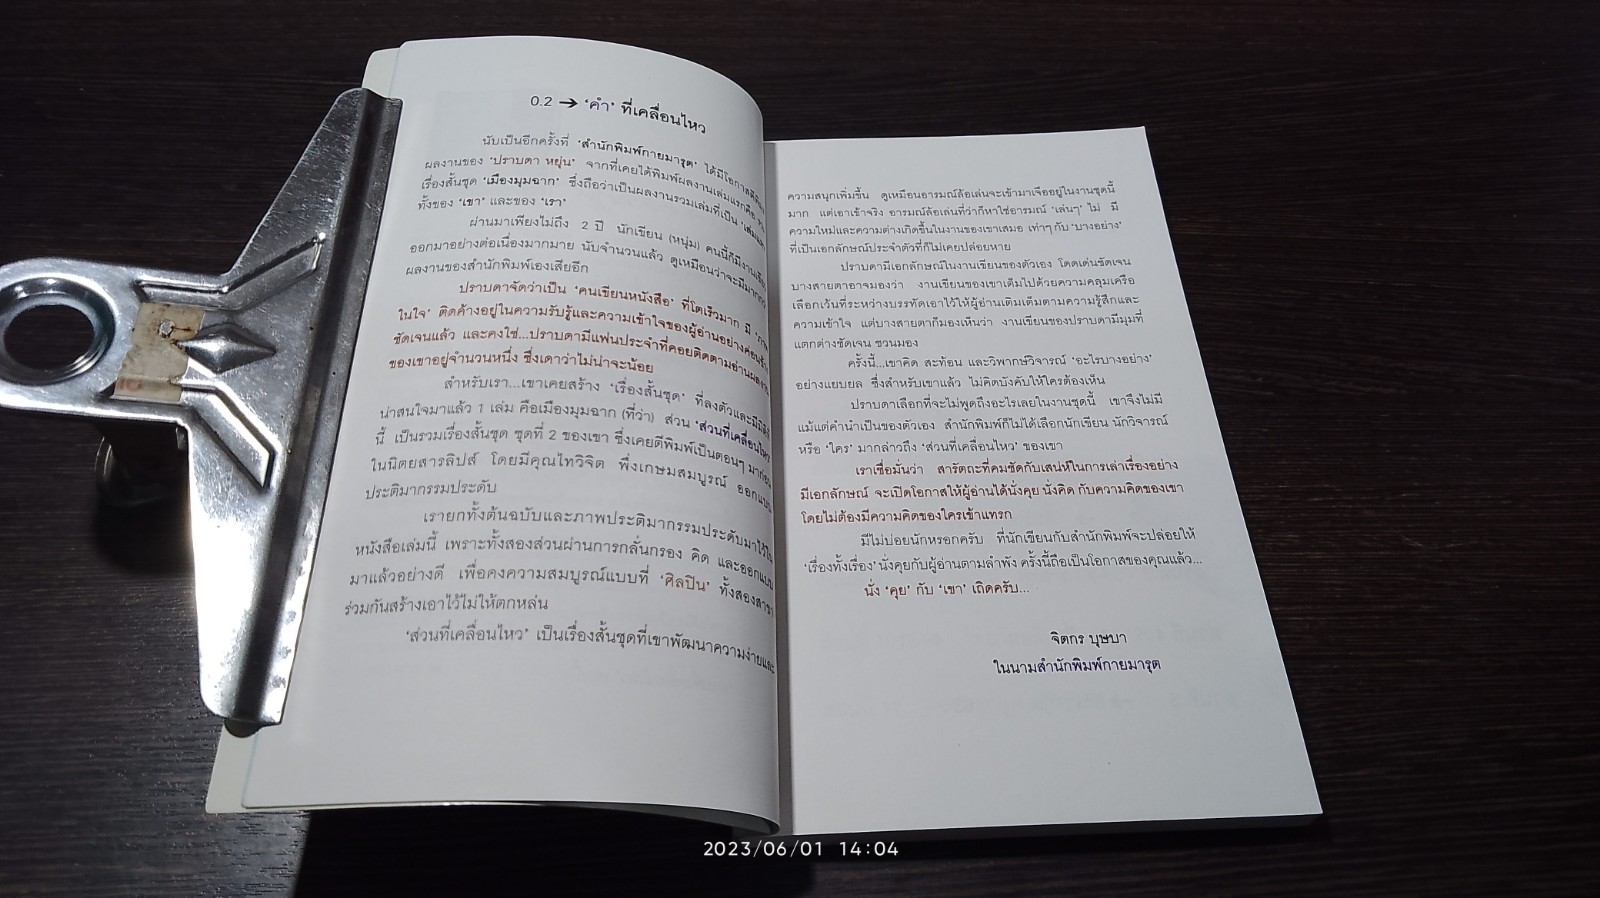 0.2 → 'คำ' ที่เคลื่อนไหว
นับเป็นอีกครั้งที่ 'สำนักพิมพ์กายมารุต' ได้มีโอกาสตีพิมพ์
ผลงานของ 'ปราบดา หยุ่น' จากที่เคยได้พิมพ์ผลงานเล่มแรกคือ
เรื่องสั้นชุด 'เมืองมุมฉาก' ซึ่งถือว่าเป็นผลงานรวมเล่มที่เป็น 'เล่มแรก'
ทั้งของ 'เขา' และของ 'เรา'
ผ่านมาเพียงไม่ถึง 2 ปี นักเขียน (หนุ่ม) คนนี้ก็มีงานเขียน
ออกมาอย่างต่อเนื่องมากมาย นับจำนวนแล้ว ดูเหมือนว่าจะมีมากกว่า
ผลงานของสำนักพิมพ์เองเสียอีก
ปราบดาจัดว่าเป็น 'คนเขียนหนังสือ' ที่โตเร็วมาก มี 'ภาพ
ในใจ' ติดค้างอยู่ในความรับรู้และความเข้าใจของผู้อ่านอย่างค่อนข้าง
ชัดเจนแล้ว และคงใช่...ปราบดามีแฟนประจำที่คอยติดตามอ่านผลงาน
ของเขาอยู่จำนวนหนึ่ง ซึ่งเดาว่าไม่น่าจะน้อย
สำหรับเรา...เขาเคยสร้าง 'เรื่องสั้นชุด' ที่ลงตัวและมีมิติที่
น่าสนใจมาแล้ว 1 เล่ม คือเมืองมุมฉาก (ที่ว่า) ส่วน 'ส่วนที่เคลื่อนไหว'
นี้ เป็นรวมเรื่องสั้นชุด ชุดที่ 2 ของเขา ซึ่งเคยตีพิมพ์เป็นตอนๆ มาก่อน
ในนิตยสารลิปส์ โดยมีคุณไทวิจิต พึ่งเกษมสมบูรณ์ ออกแบบ
ประติมากรรมประดับ
เรายกทั้งต้นฉบับและภาพประติมากรรมประดับมาไว้ใน
หนังสือเล่มนี้ เพราะทั้งสองส่วนผ่านการกลั่นกรอง คิด และออกแบบ
มาแล้วอย่างดี เพื่อคงความสมบูรณ์แบบที่ 'ศิลปิน' ทั้งสองสาขา
ร่วมกันสร้างเอาไว้ไม่ให้ตกหล่น
'ส่วนที่เคลื่อนไหว' เป็นเรื่องสั้นชุดที่เขาพัฒนาความง่ายและ
ความสนุกเพิ่มขึ้น ดูเหมือนอารมณ์ล้อเล่นจะเข้ามาเจืออยู่ในงานชุดนี้
มาก แต่เอาเข้าจริง อารมณ์ล้อเล่นที่ว่าก็หาใช่อารมณ์ 'เล่นๆ' ไม่ มี
ความใหม่และความต่างเกิดขึ้นในงานของเขาเสมอ เท่าๆ กับ 'บางอย่าง'
ที่เป็นเอกลักษณ์ประจำตัวที่ก็ไม่เคยปล่อยหาย
ปราบดามีเอกลักษณ์ในงานเขียนของตัวเอง โดดเด่นชัดเจน
บางสายตาอาจมองว่า งานเขียนของเขาเต็มไปด้วยความคลุมเครือ
เลือกเว้นที่ระหว่างบรรทัดเอาไว้ให้ผู้อ่านเติมเต็มตามความรู้สึกและ
ความเข้าใจ แต่บางสายตาก็มองเห็นว่า งานเขียนของปราบดามีมุมที่
แตกต่างชัดเจน ชวนมอง
ครั้งนี้...เขาคิด สะท้อน และวิพากษ์วิจารณ์ 'อะไรบางอย่าง'
อย่างแยบยล ซึ่งสำหรับเขาแล้ว ไม่คิดบังคับให้ใครต้องเห็น
ปราบดาเลือกที่จะไม่พูดถึงอะไรเลยในงานชุดนี้ เขาจึงไม่มี
แม้แต่คำนำเป็นของตัวเอง สำนักพิมพ์ก็ไม่ได้เลือกนักเขียน นักวิจารณ์
หรือ 'ใคร' มากล่าวถึง 'ส่วนที่เคลื่อนไหว' ของเขา
เราเชื่อมั่นว่า สารัตถะที่คมชัดกับเสน่ห์ในการเล่าเรื่องอย่าง
มีเอกลักษณ์ จะเปิดโอกาสให้ผู้อ่านได้นั่งคุย นั่งคิด กับความคิดของเขา
โดยไม่ต้องมีความคิดของใครเข้าแทรก
มีไม่บ่อยนักหรอกครับ ที่นักเขียนกับสำนักพิมพ์จะปล่อยให้
'เรื่องทั้งเรื่อง' นั่งคุยกับผู้อ่านตามลำพัง ครั้งนี้ถือเป็นโอกาสของคุณแล้ว...
นั่ง 'คุย' กับ 'เขา' เถิดครับ...
จิตกร บุษบา
ในนามสำนักพิมพ์กายมารุต
2023/06/01 14:04